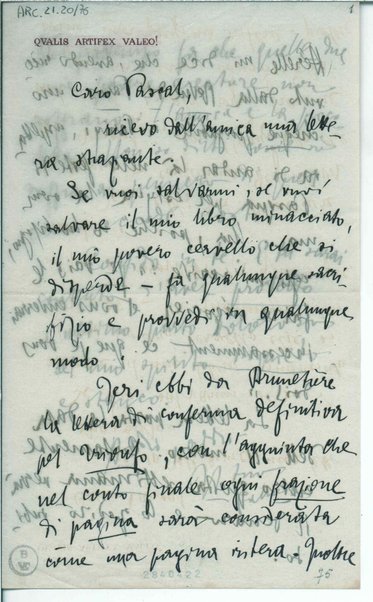 ARC. 21.20/75
QVALIS ARTIFEX VALEO!
Caro Pascal,
ricevo dall'amica una lette-
ra straziante.
Se vuoi salvarmi, se vuoi
salvare il mio libro minacciato,
il mio povero cervello che si
disperde — fa qualunque sacri-
fizio e provvedi in qualunque
modo.
Jeri ebbi da Brunetière
la lettera di conferma definitiva
pel Trionfo, con l'aggiunta che
nel conto finale ogni frazione
di pagina sarà considerata
come una pagina intera. Inoltre
2840422
75